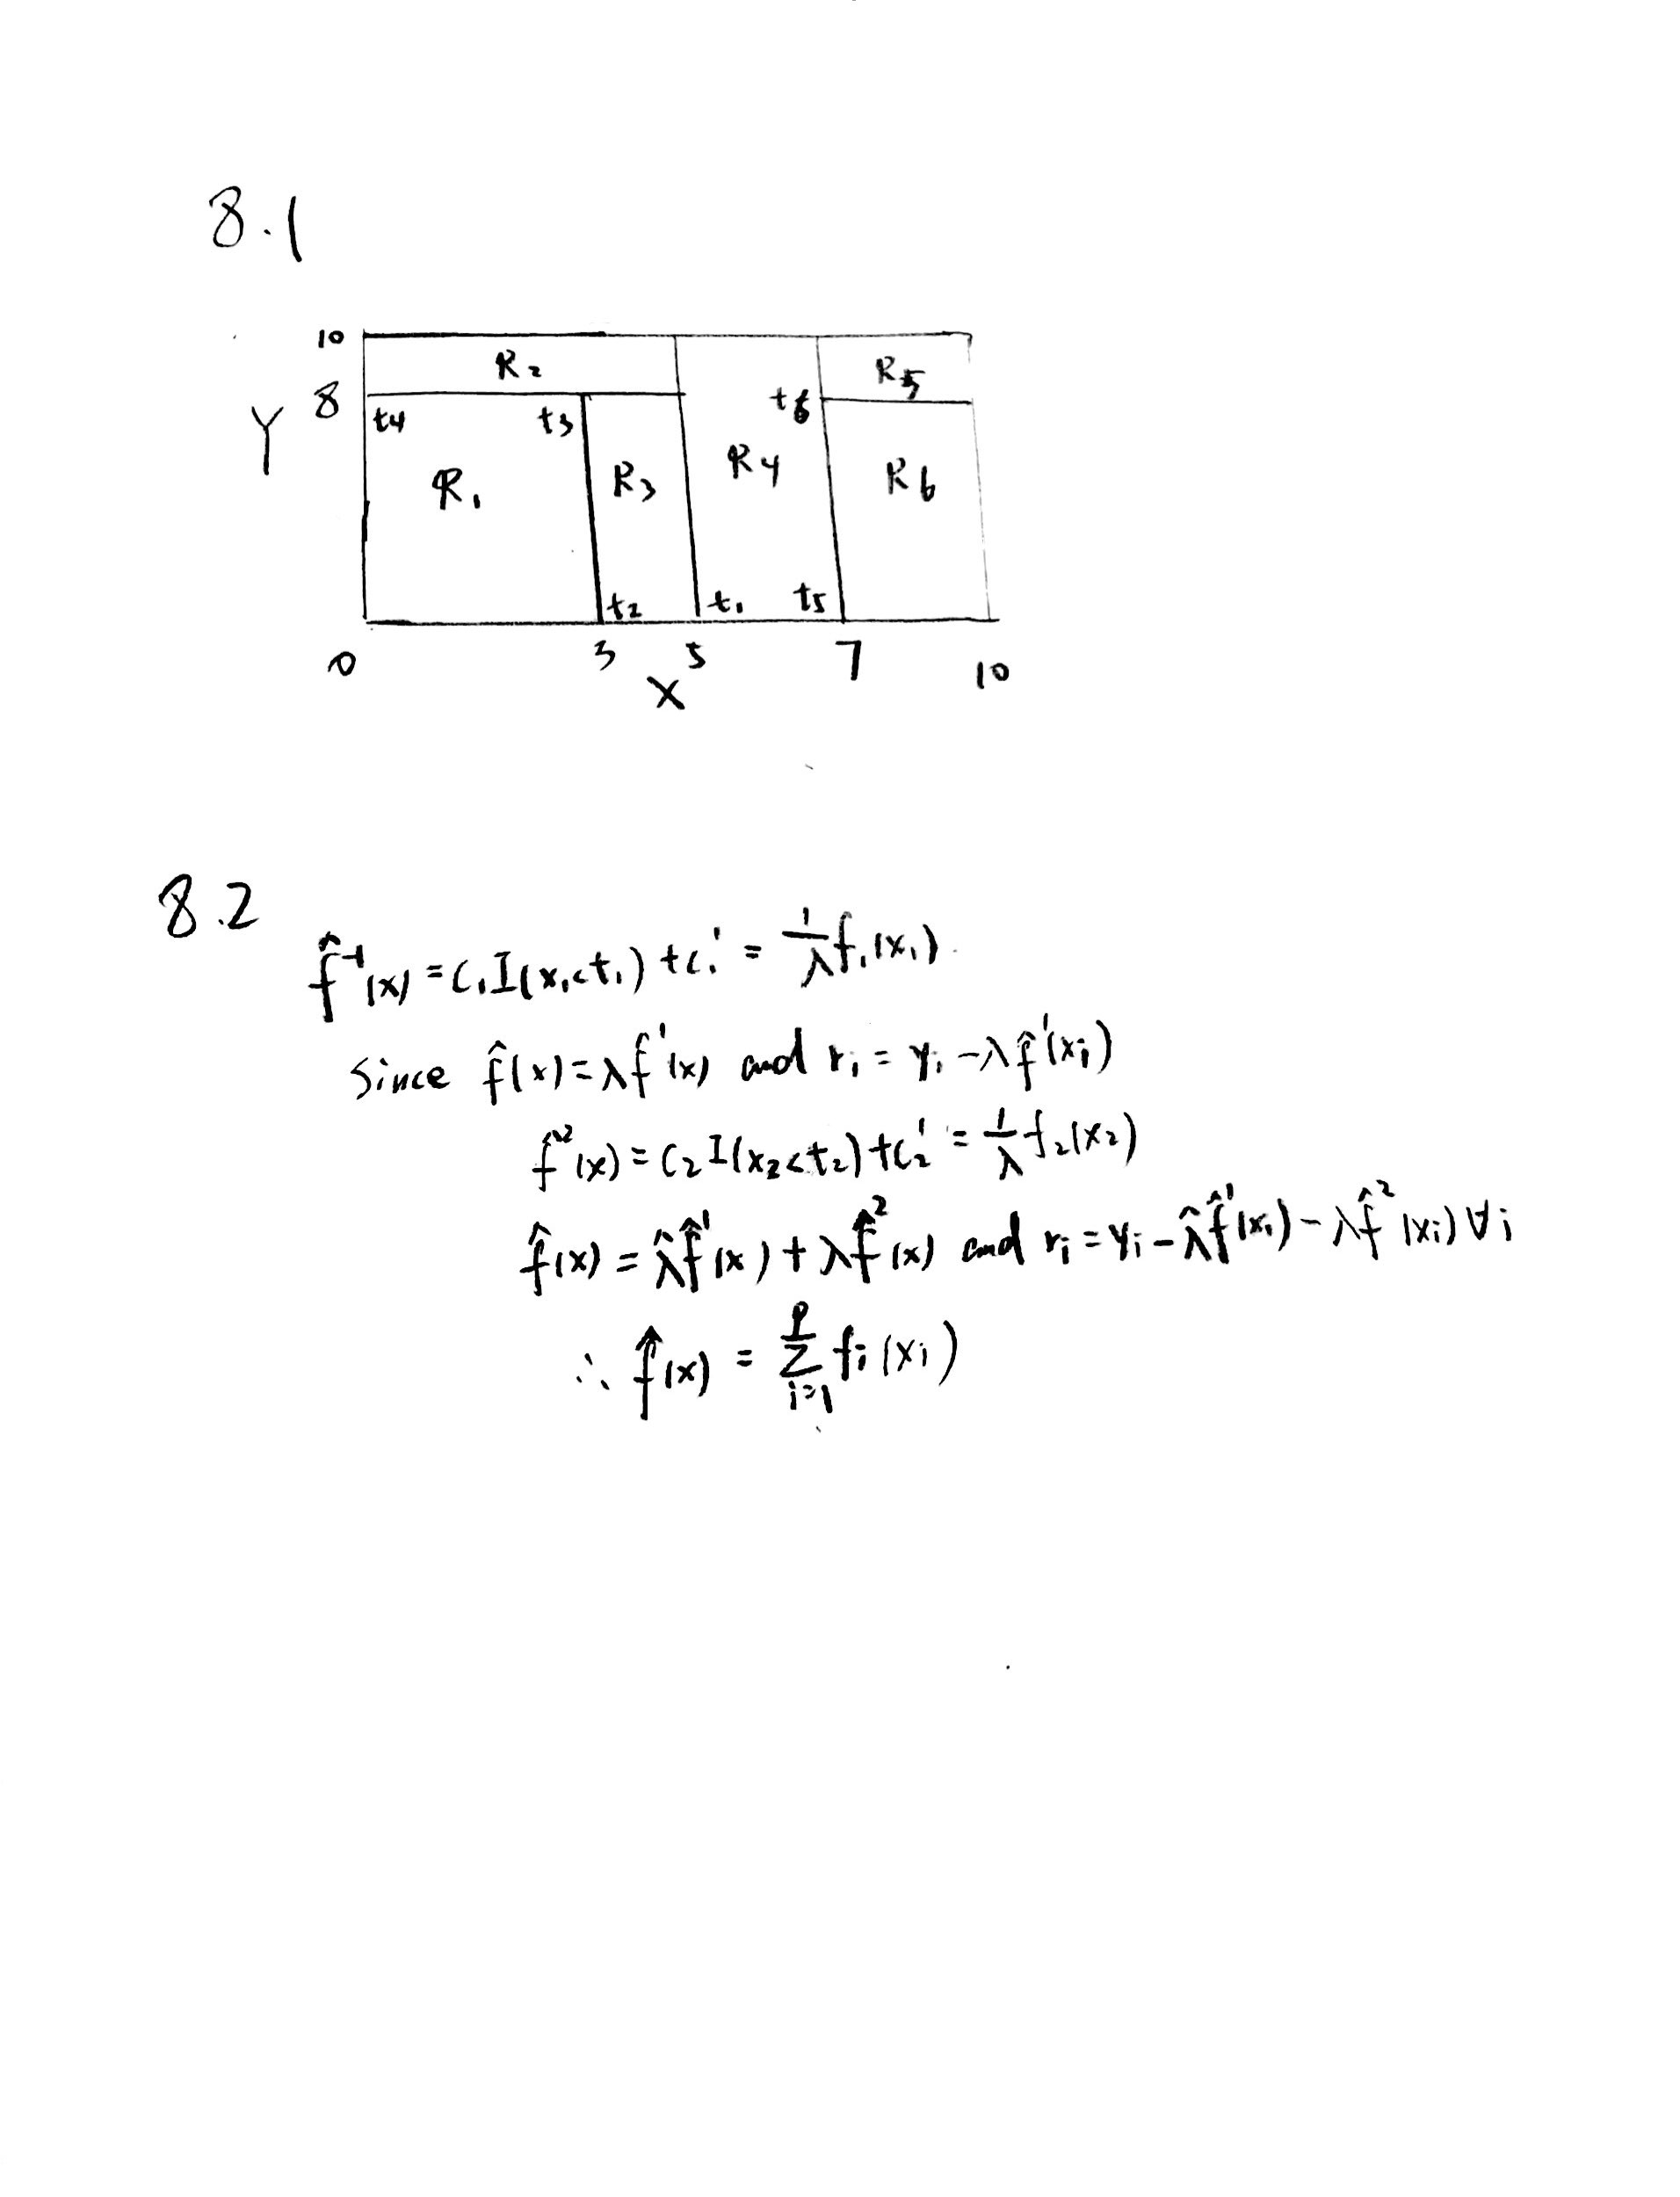 8.1
10
R2
R5
Y 8
t4 t3 t6
R1 R3 R4 R6
t2 t1 t5
0 3 5 7 10
X
8.2
f̂¹(x) = c₁I(x₁<t₁) + c₁' = 1/λ f₁(x₁).
since f̂(x) = λf̂'(x) and rᵢ = yᵢ - λf̂'(xᵢ)
f̂²(x) = c₂I(x₂<t₂) + c₂' = 1/λ f₂(x₂)
f̂(x) = λf̂'(x) + λf̂²(x) and rᵢ = yᵢ - λf̂'(xᵢ) - λf̂²(xᵢ) ∀i
∴ f̂(x) = Σᵢ₌₁ᵖ fᵢ(xᵢ)